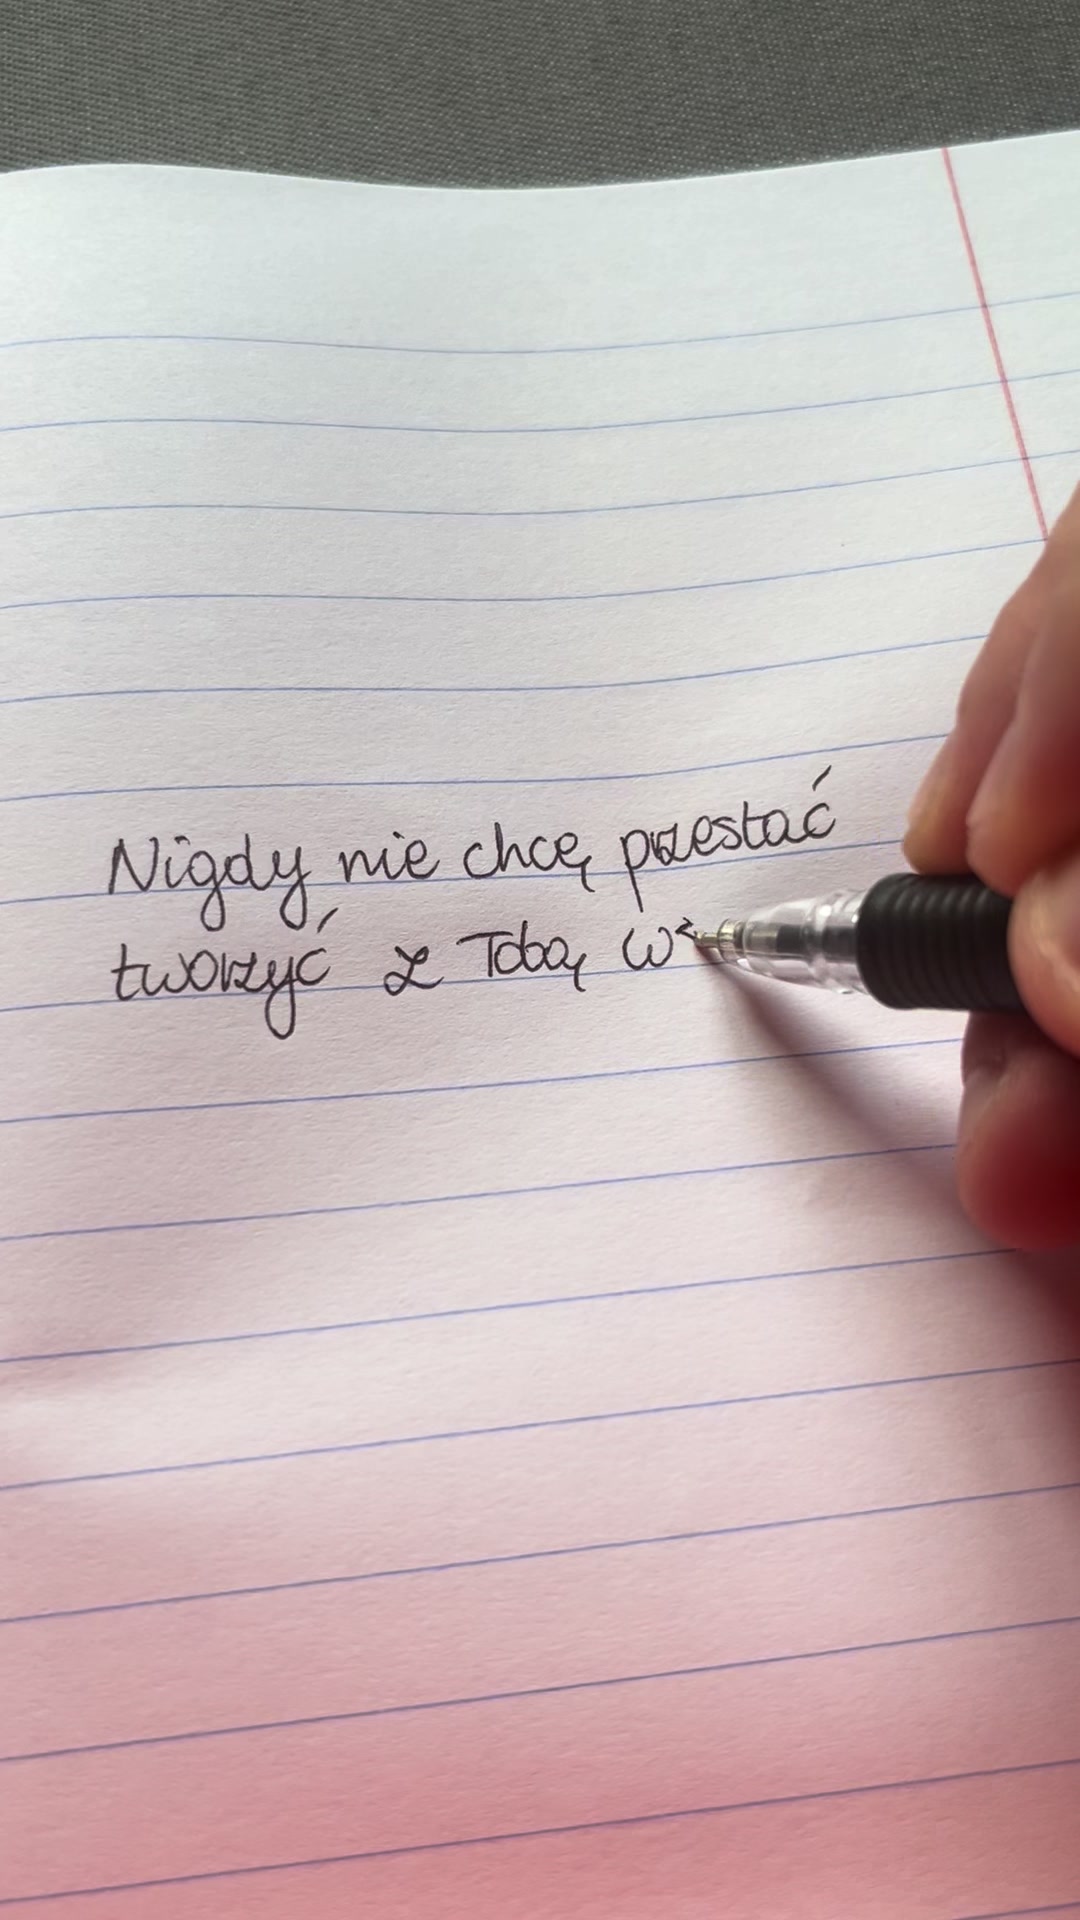 Nigdy nie chcę przestać
tworzyć z Tobą